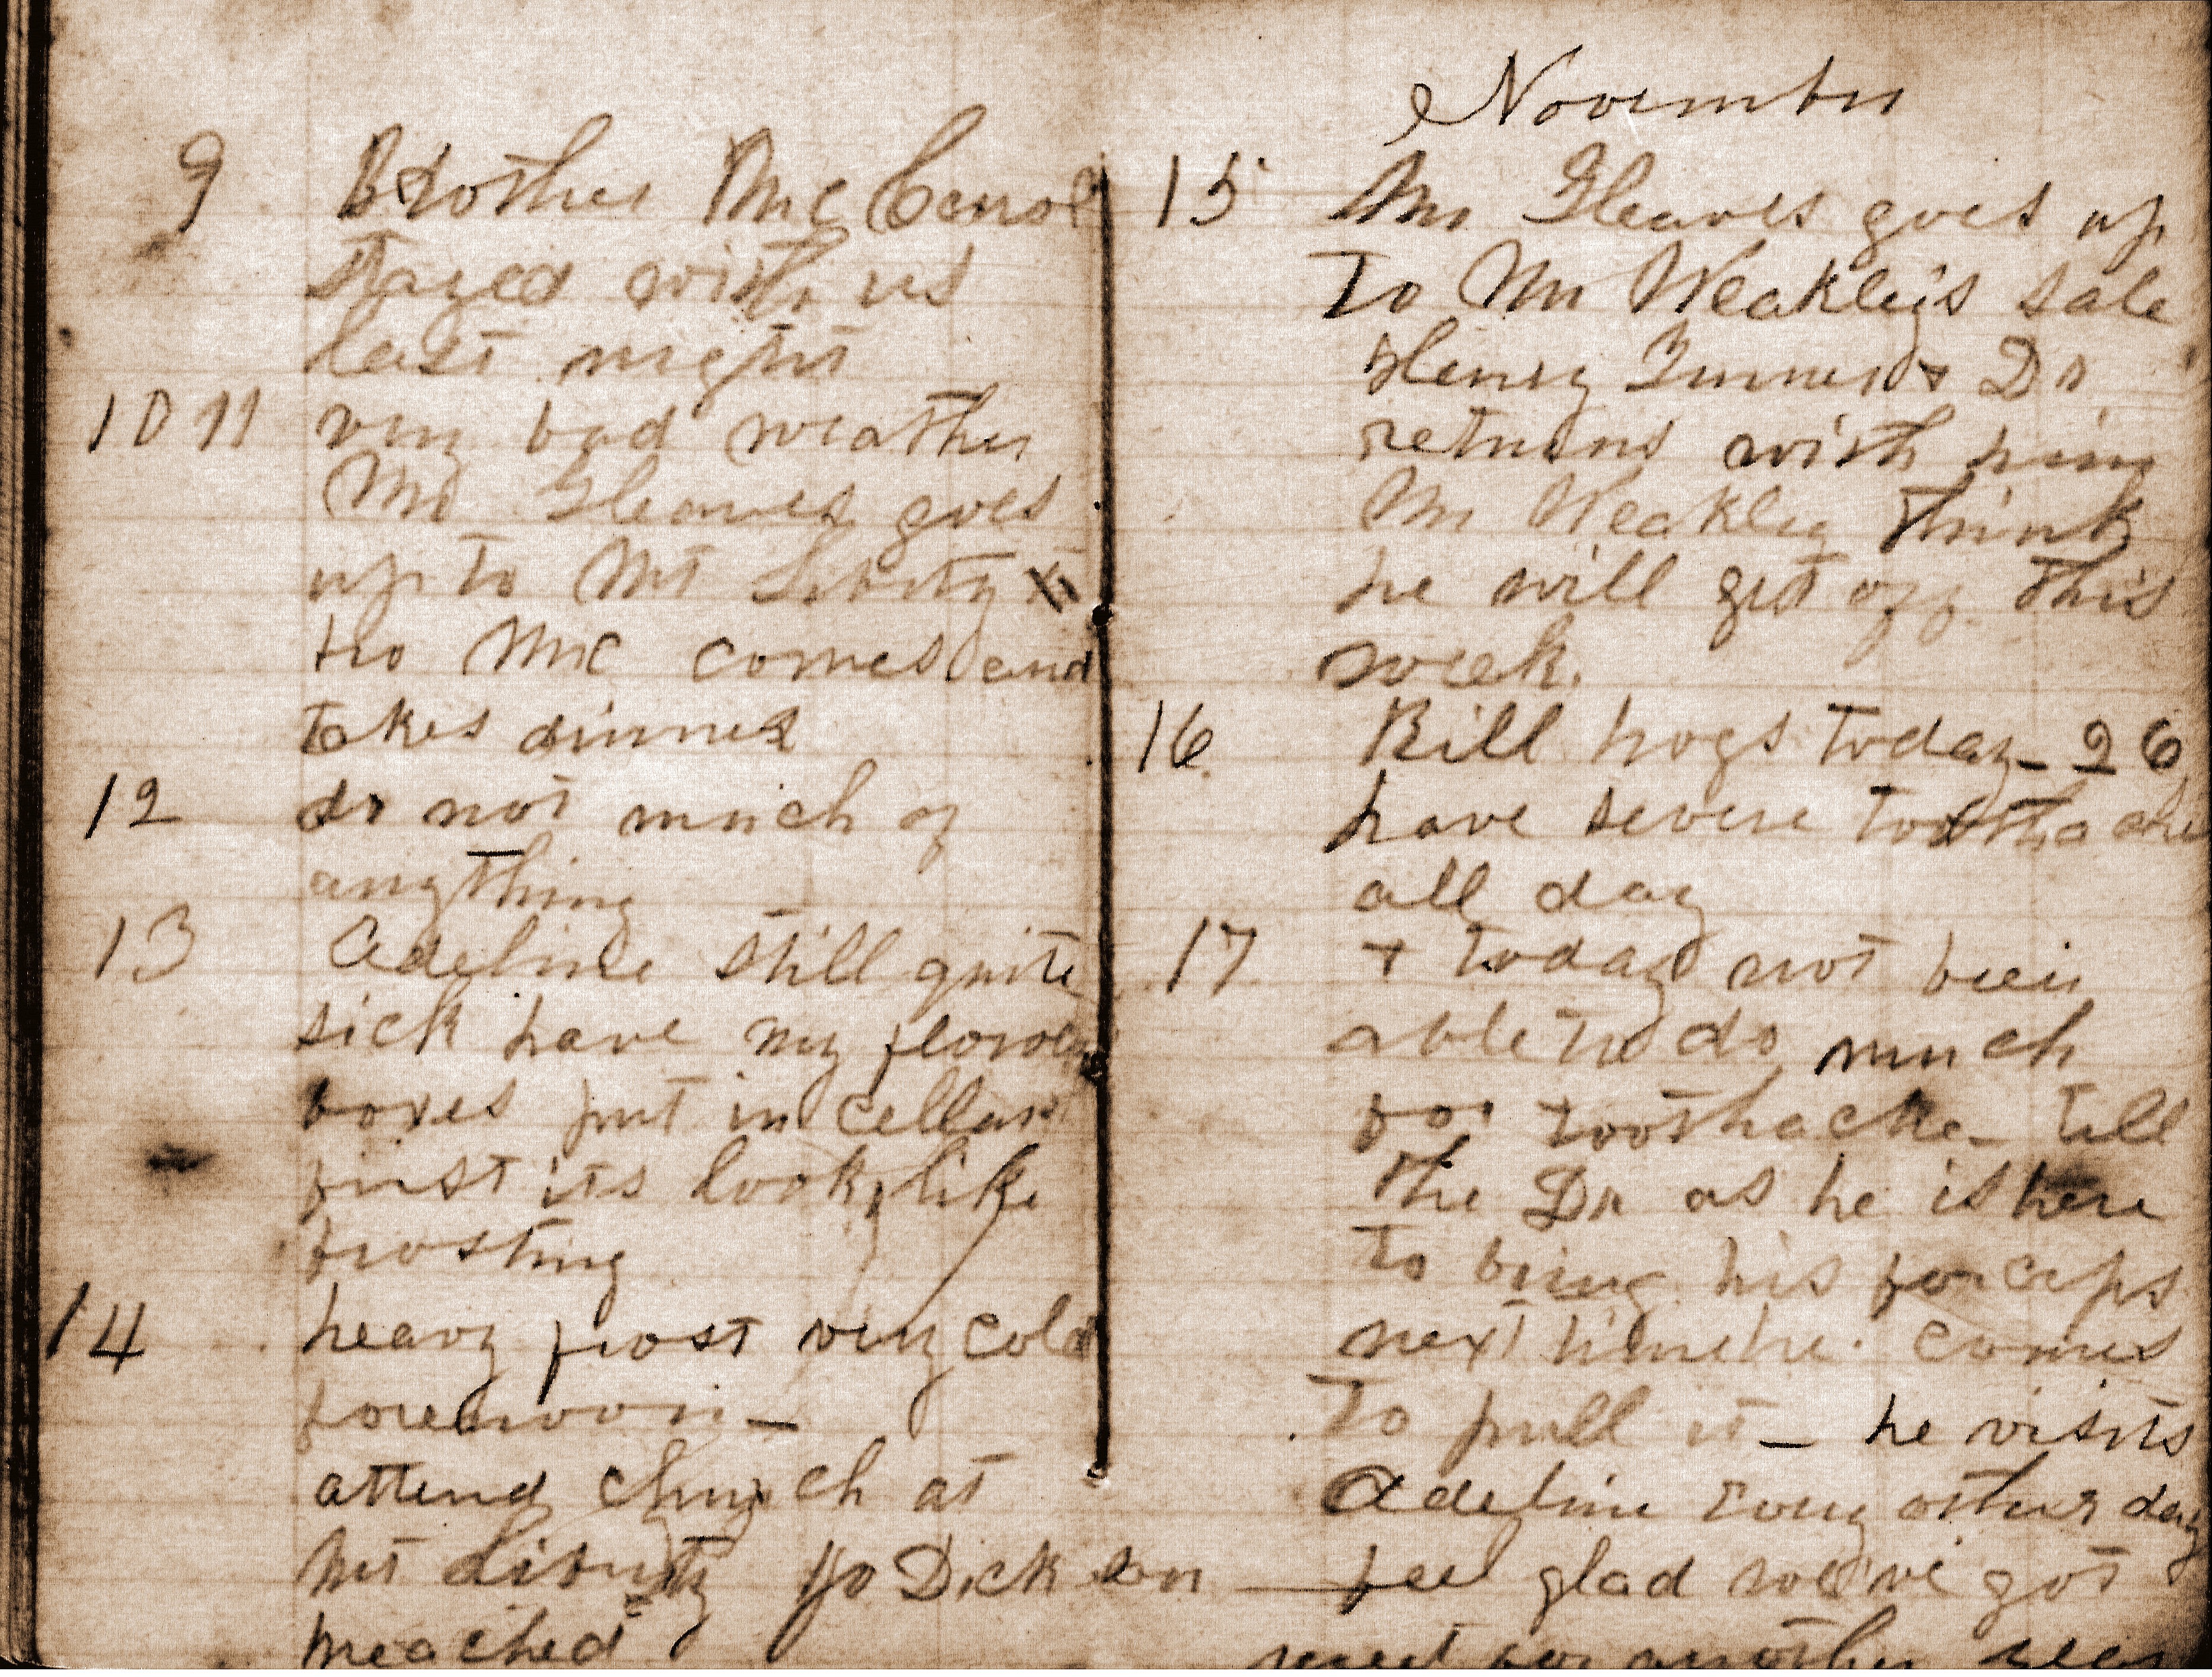 9 Brother McCarrol
stayed with us
last night
10 11 very bad weather
Mr Gleaves goes
up to Mt Liberty
bro Mc comes and
takes dinner
12 do not much of
anything
13 Adeline still quite
sick have my flower
boxes put in cellar
first its looks like
frosting
14 heavy frost very cold
forenoon —
attend church at
Mt Liberty Yo Dickson
preached
November
15 Mr Gleaves goes up
To Mr Weakley's sale
Henry Turner + Dr
returns with him
Mr Weakley think
he will get off this
week.
16. Kill hogs today — 26
have severe toothache
all day
17 + today not been
able to do much
for toothache — tell
the Dr as he is here
to bring his forceps
next time he comes
To pull it — he visits
Adeline Every other day
— feel glad we've got
meat for another year